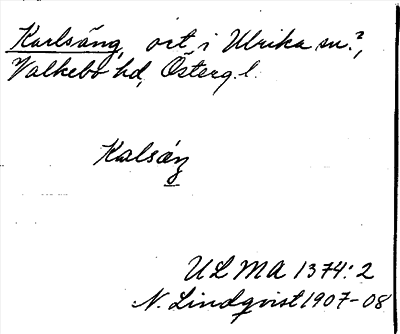 Karlsäng, ort i Ulrika sn?,
Valkebo hd, Österg.l.
Kalsäŋ
ULMA 1374:2
N. Lindqvist 1907-08